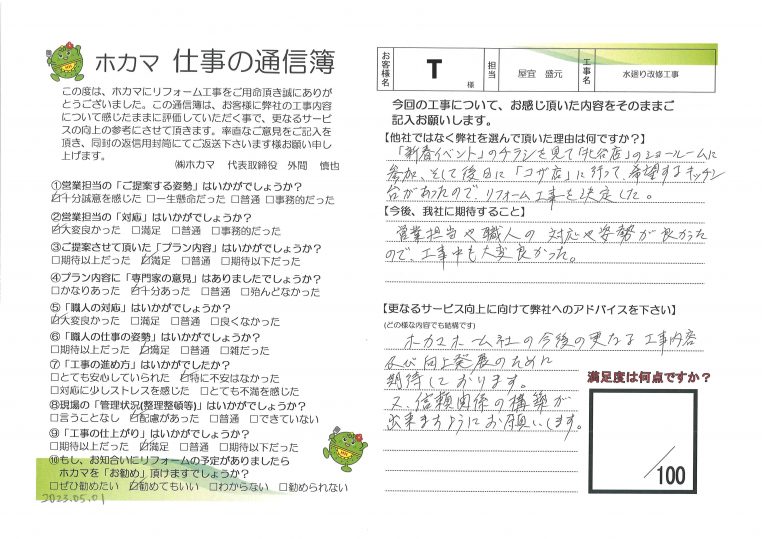 ホカマ 仕事の通信簿
この度は、ホカマにリフォーム工事をご用命頂き誠にありが
とうございました。この通信簿は、お客様に弊社の工事内容
について感じたままに評価していただく事で、更なるサービ
スの向上の参考にさせて頂きます。率直なご意見をご記入を
頂き、同封の返信用封筒にてご返送下さいます様お願い申し
上げます。
㈱ホカマ 代表取締役 外間 慎也
①営業担当の「ご提案する姿勢」はいかがでしょうか?
☑十分誠意を感じた □一生懸命だった □普通 □事務的だった
②営業担当の「対応」はいかがでしょうか?
☑大変良かった □満足 □普通 □事務的だった
③ご提案させて頂いた「プラン内容」はいかがでしょうか?
□期待以上だった ☑満足 □普通 □期待以下だった
④プラン内容に「専門家の意見」はありましたでしょうか?
□かなりあった ☑十分あった □普通 □殆んどなかった
⑤「職人の対応」はいかがでしょうか?
☑大変良かった □満足 □普通 □良くなかった
⑥「職人の仕事の姿勢」はいかがでしょうか?
□期待以上だった ☑満足 □普通 □雑だった
⑦「工事の進め方」はいかがでしたか?
□とても安心していられた ☑特に不安はなかった
□対応に少しストレスを感じた □とても不満を感じた
⑧現場の「管理状況(整理整頓等)」はいかがでしょうか?
□言うことなし ☑配慮があった □普通 □できていない
⑨「工事の仕上がり」はいかがでしょうか?
□期待以上だった ☑満足 □普通 □期待以下だった
⑩もし、お知合いにリフォームの予定がありましたら
ホカマを「お勧め」頂けますでしょうか?
□ぜひ勧めたい ☑勧めてもいい □わからない □勧められない
2023.05.01
お客様名 T 様 担当 屋宜 盛元 工事名 水廻り改修工事
今回の工事について、お感じ頂いた内容をそのままご
記入お願いします。
【他社ではなく弊社を選んで頂いた理由は何ですか?】
「新春イベント」のチラシを見て「北谷店」のショールームに
参加、そして後日に「コザ店」に行って、希望するキッチン
台があったのでリフォーム工事を決定した。
【今後、我社に期待すること】
営業担当や職人の対応や姿勢が良かった
ので、工事中も大変良かった。
【更なるサービス向上に向けて弊社へのアドバイスを下さい】
(どの様な内容でも結構です)
ホカマホーム社の今後の更なる工事内容
及び向上発展のために
期待しております。
又、信頼関係の構築が
出来ますようにお願いします。
満足度は何点ですか?
/100